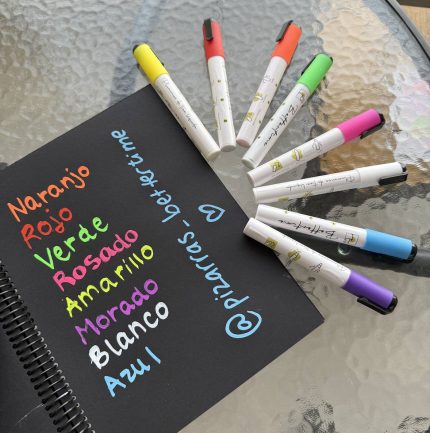 Naranjo
Rojo
Verde
Rosado
Amarillo
Morado
Blanco
Azul
@pizarras_bettertime